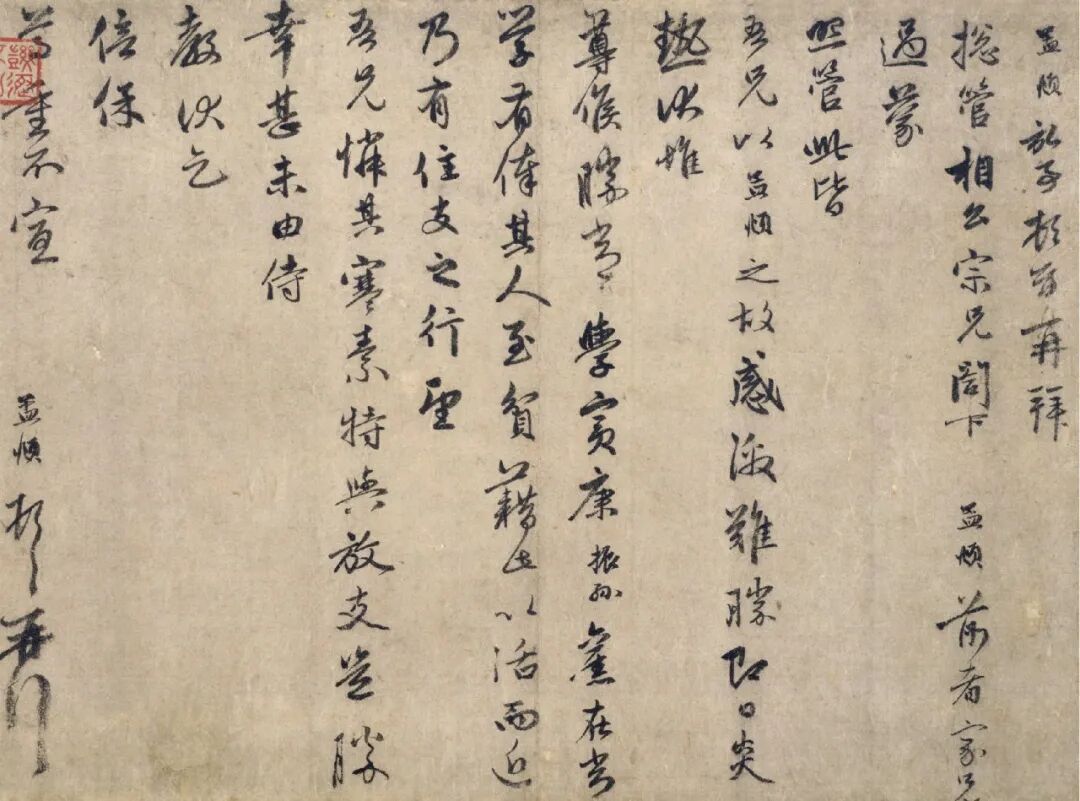 孟頫頓首再拜
揔管相公宗兄閤下 孟頫前者家兄
過蒙
照管此皆
吾兄以孟頫之故感激難勝即日炎
熱伏惟
尊候勝常學賓康振孫舊在常
學有俸其人至貧藉此以活而近
乃有住支之行望
吾兄憐其寒素特與放支豈勝
幸甚未由侍
教伏乞
倍保
尊重不宣 孟頫頓首再拜